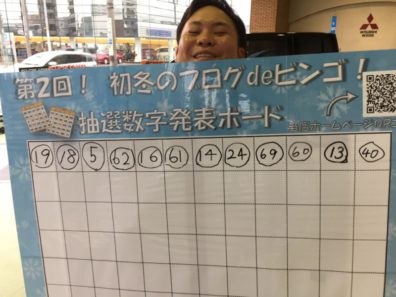 MITSUBISHI
MOTORS
第2回! 初冬のブログdeビンゴ!
抽選数字発表ボード
19 18 5 62 16 61 14 24 69 60 13 40